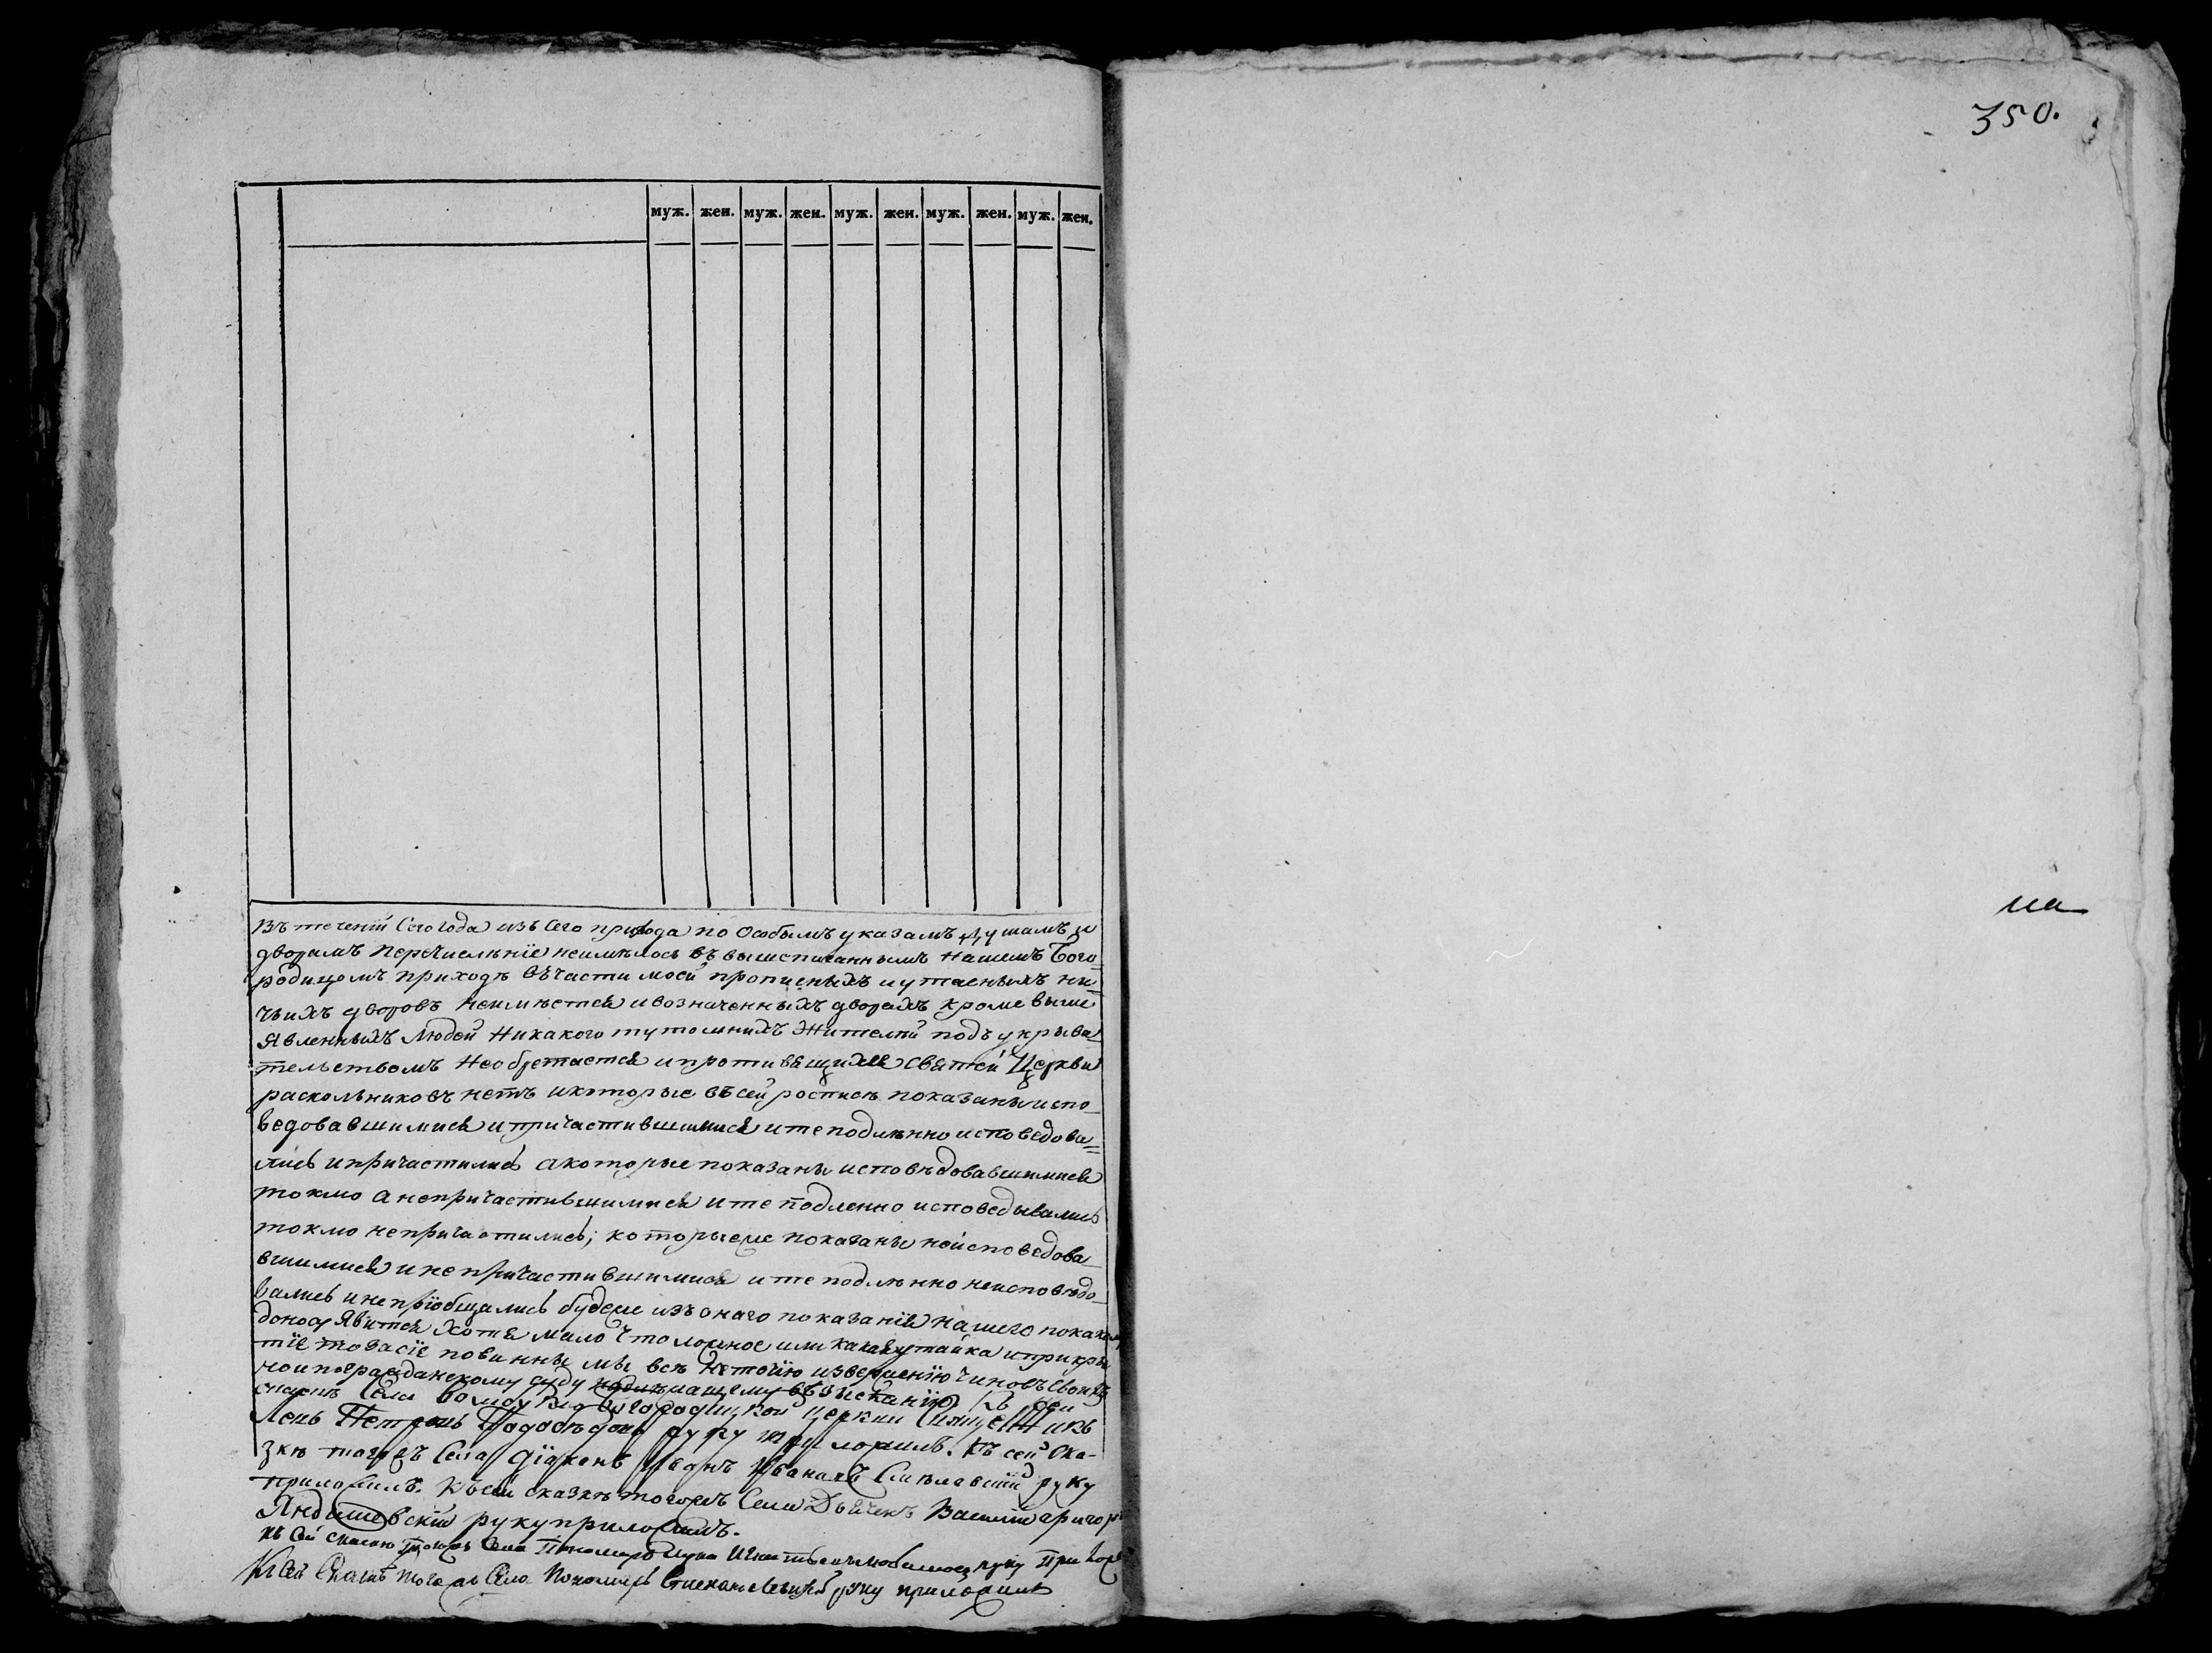 350.
муж. жен. муж. жен. муж. жен. муж. жен. муж. жен.
Въ теченіи Сего года изъ Сего прихода по Особымъ указамъ душамъ и
дворамъ перечисленіе неимѣлось въ вышеписанномъ нашемъ Бого
родицкомъ приходѣ въ части моей прописныхъ и утаенныхъ ни
чьихъ дворовъ неимѣется и возначенныхъ дворахъ кроме выше
явленныхъ людей Никакого тутошнихъ Жителей подъ укрыва
тельствомъ Необретается и противящихся святей Церкви
раскольниковъ нетъ и которые въ сей росписѣ показаны испо
ведовавшимися и причастившимися и те подлинно исповедова
лись и причастились а которые показаны исповѣдовавшимися
токмо а непричастившимися и те подленно исповедывались
токмо непричастились; которыеже показаны неисповедова
вшимися и непричастившимися и те подлѣнно неисповѣдо
вались и непріобщались будеже изъ онаго показанія нашего по
доносу явится Хотя мало что ложное или какая утайка и прикры
тіе то за сіе повинны мы всѣ неточію изверженію чиновъ Своихъ
но и погражданскому суду надлежащему взысканію Къ сей
Села Богородицкой церкви Священникъ
Петровъ руку приложилъ. Къ сей Ска-
зкѣ тогожъ Села Діаконъ Ивановъ руку
приложилъ. Къ сей сказкѣ тогожъ Села Дьячекъ Василій Григорь
руку приложилъ.
Къ сей Скаскѣ тогожъ Села Пономарь руку При
Къ Сей Скаскѣ тогожъ Села Пономарь Степанъ руку приложилъ
на